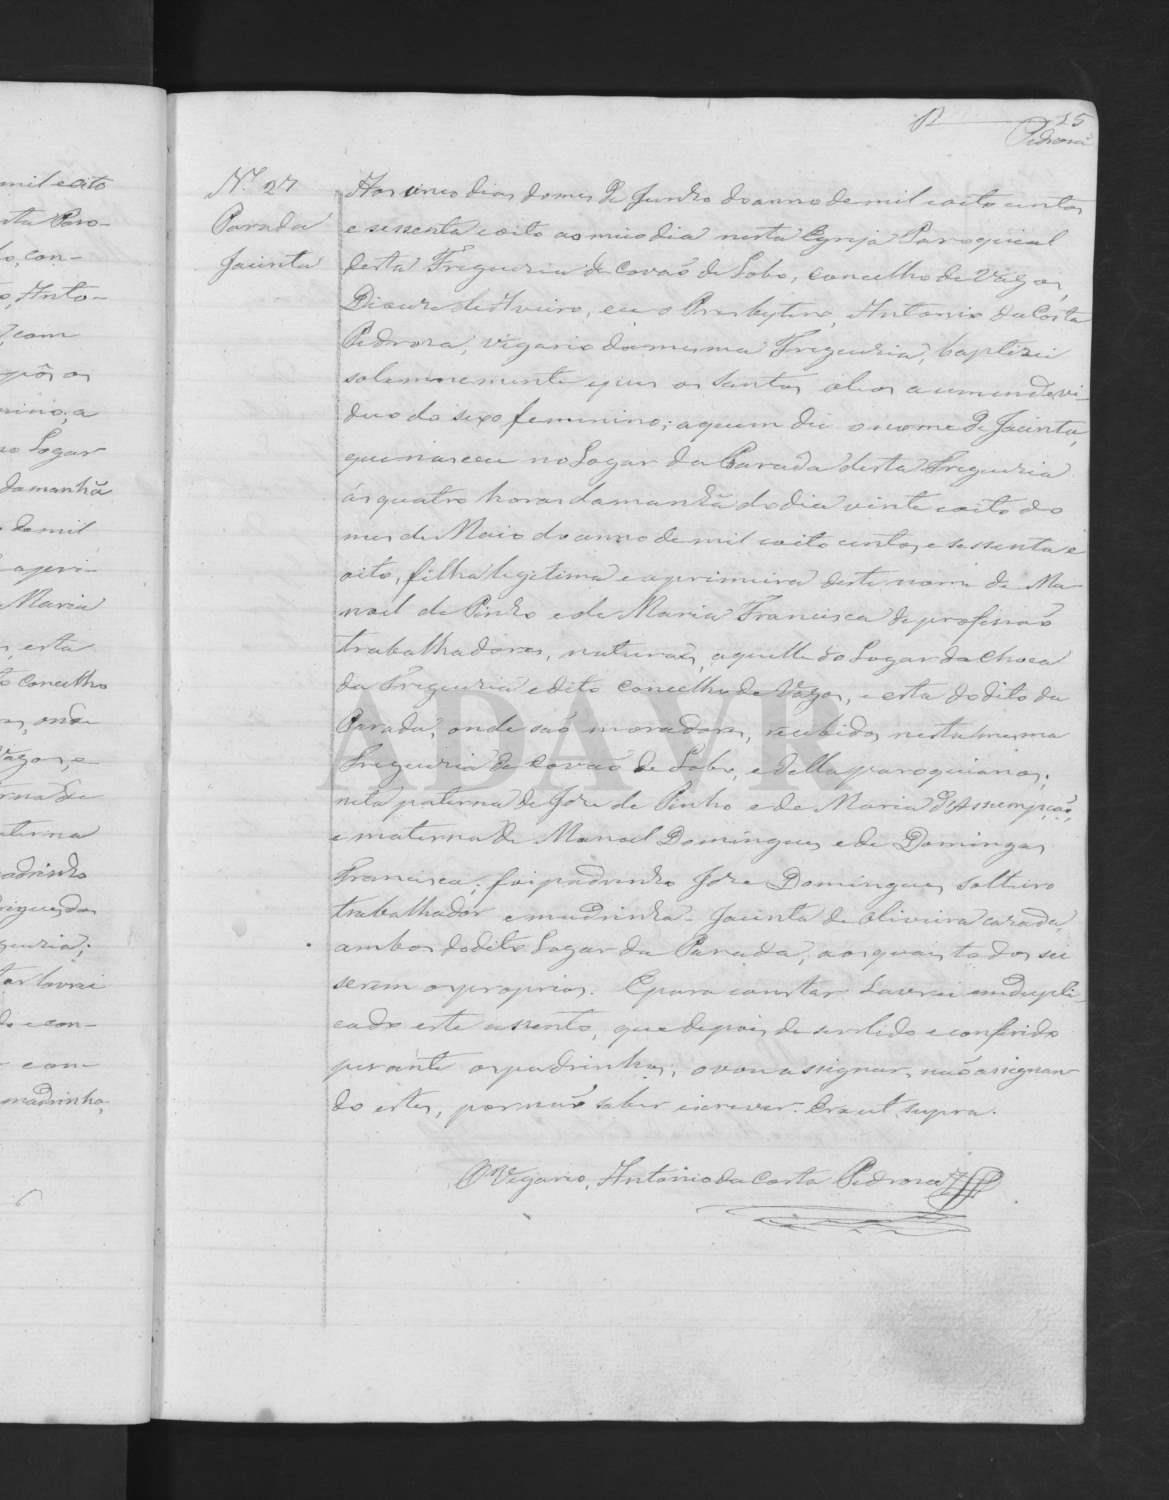 R 25
Pedrosa
N.º 27
Parada
Jacinta
Aos cinco dias do mes de Junho do anno de mil e oito centos
e sessenta e oito ao meio dia nesta Egreja Paroquial
desta Freguezia de Covaõ de Lobo, concelho de Vagos,
Diocese de Aveiro, eu o Presbytero, Antonio da Costa
Pedrosa, vigario da mesma Freguezia, baptizei
solemnemente e pus os santos oleos a um individ
duo do sexo feminino; a quem dei o nome de Jacinta,
que nasceu no Logar da Parada desta Freguezia
ás quatro horas da manhã do dia vinte e oito do
mes de Maio do anno de mil e oito centos e sessenta e
oito, filha legitima e a primeira deste nome de Ma-
noel de Pinho e de Maria Francisca de profissaõ
trabalhadores, naturaes, aquelle do Logar da Choca
da Freguezia e dito concelho de Vagos, e esta do dito da
Parada, onde saõ moradores, recebidos nesta mesma
Freguezia de Covaõ de Lobo, e della paroquianos;
neta paterna de Joze de Pinho e de Maria d'Assumpçaõ,
e materna de Manoel Domingues e de Domingas
Francisca; foi padrinho Joze Domingues solteiro
trabalhador e madrinha - Jacinta de Oliveira casada,
ambos do dito Logar da Parada, aos quais todos sei
serem os proprios. E para constar lavrei em dupli-
cado este assento, que depois de ser lido e conferido
perante os padrinhos, o vou assignar, naõ assignan
do estes, por naõ saber escrever. Era ut supra.
O Vigario, Antonio da Costa Pedrosa
mil e oito
sta Paro-
lo, con-
o, Anto-
com
pôs os
nino, a
no Logar
da manhã
de mil
a peri-
Maria
, esta
to concelho
s, onde
Vagos, e
rna de
aterna
adrinho
rigues dos
guezia;
tar lavrei
do e con-
com
madrinha,
ADAVR